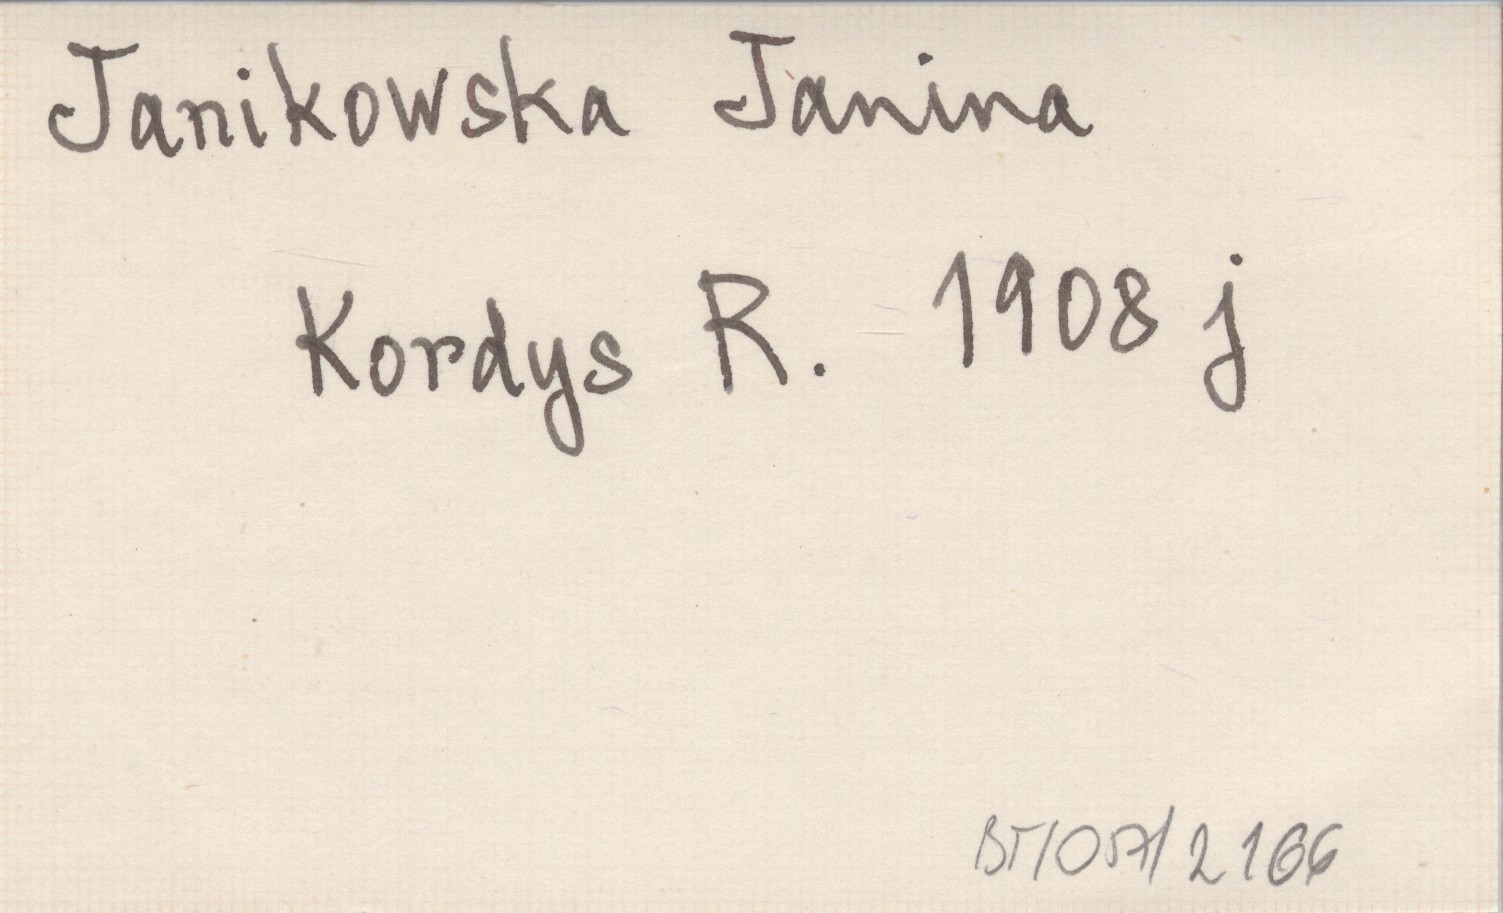 Janikowska Janina
Kordys R. 1908 j
BT/057/2166